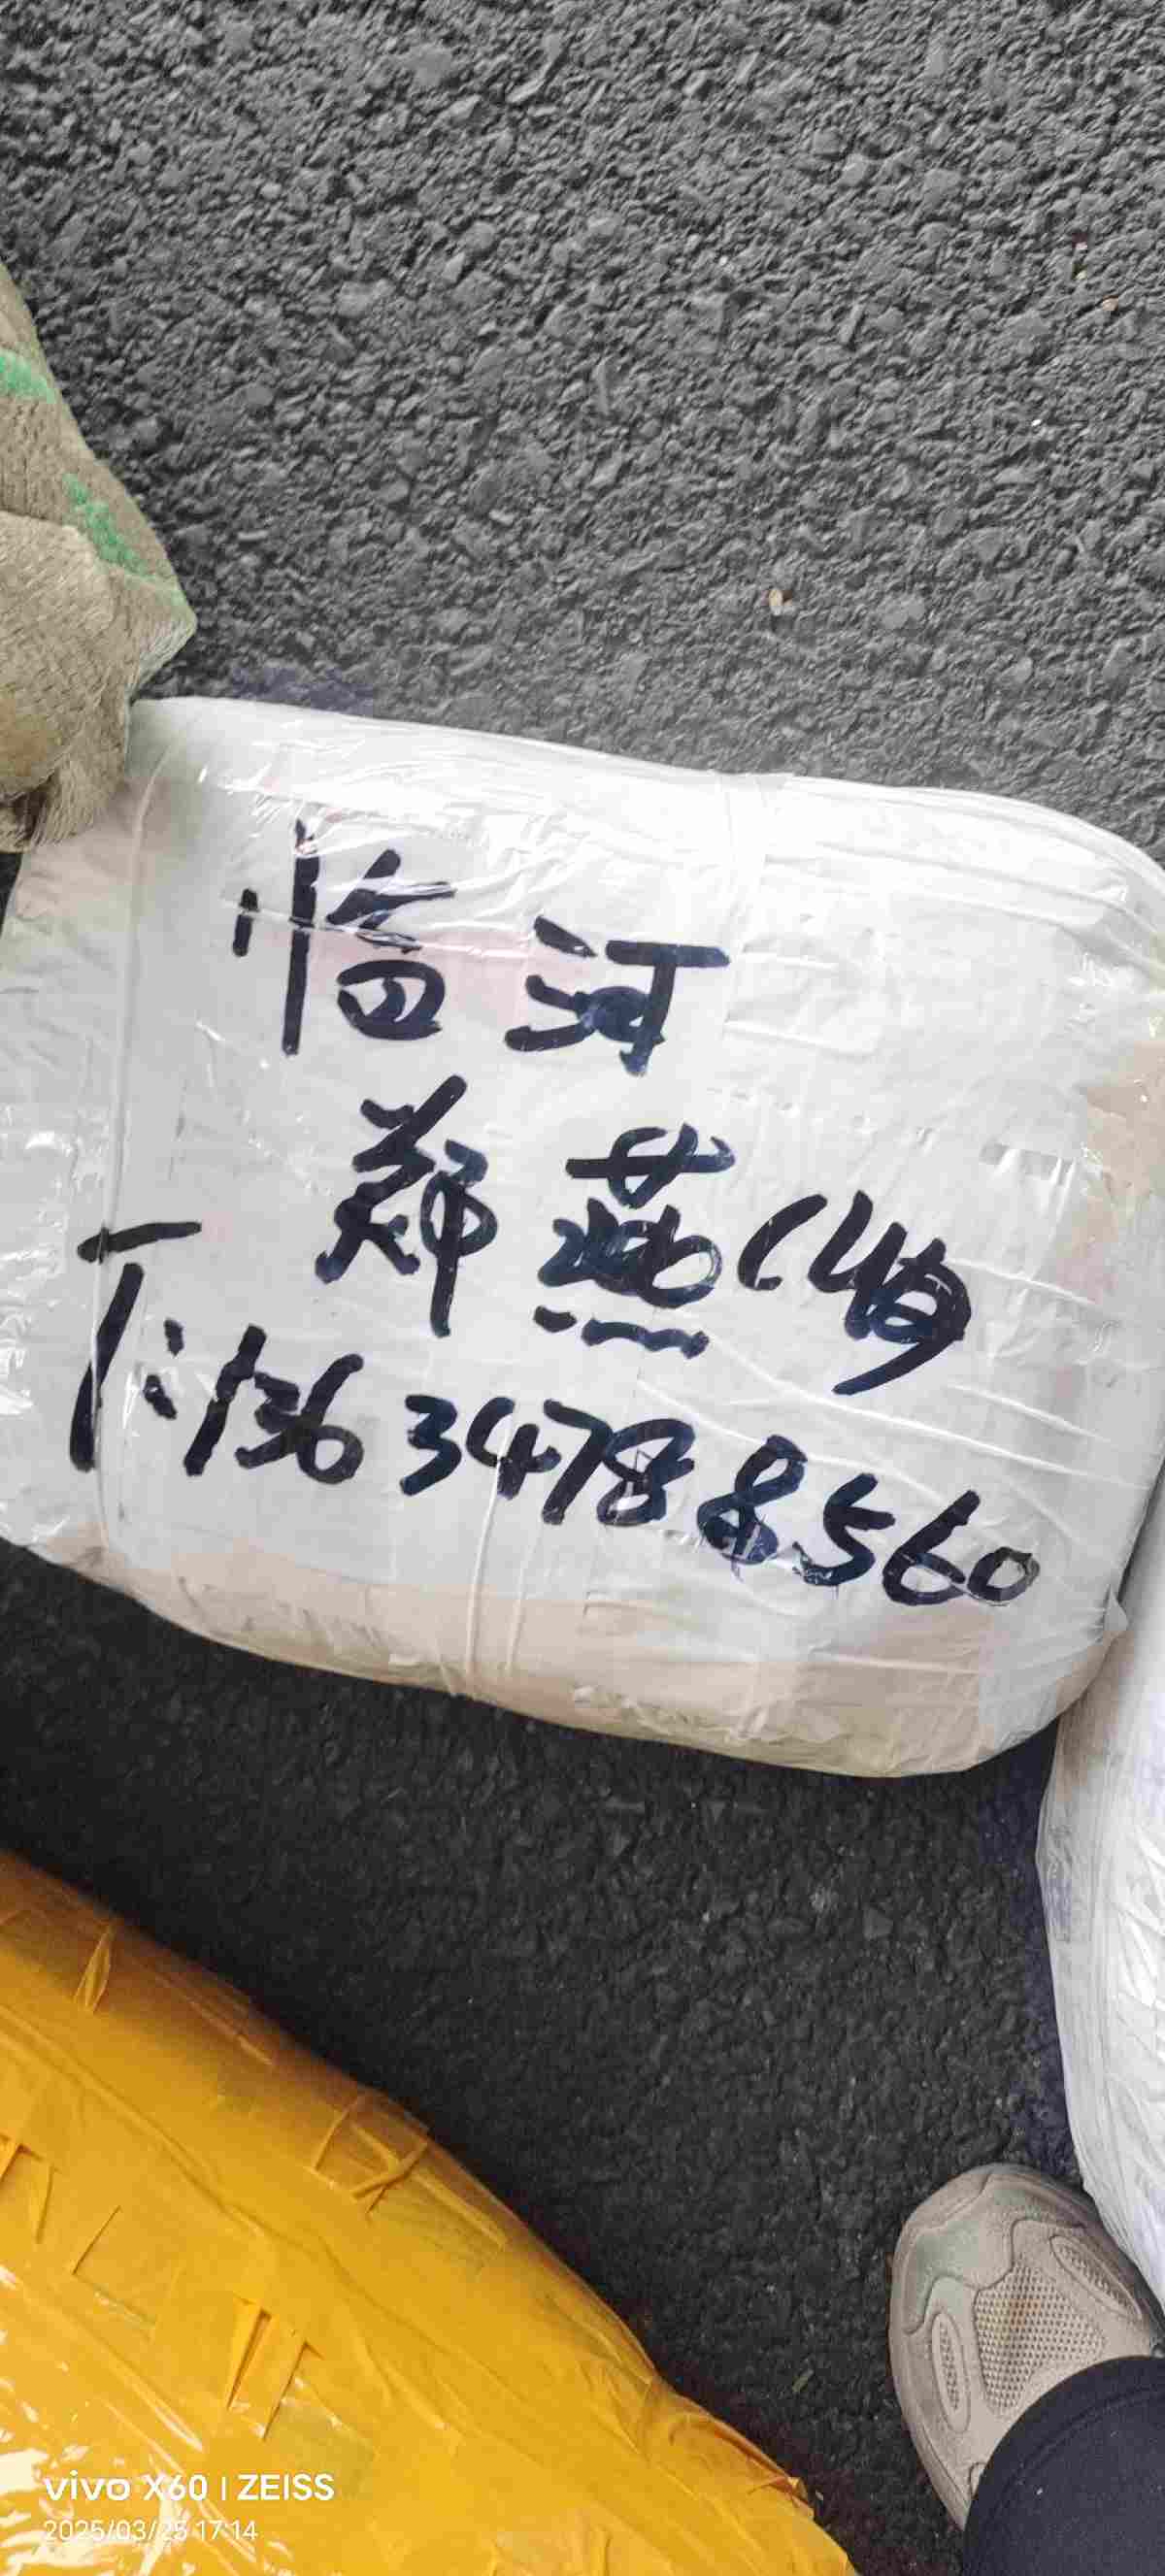 临河
郑燕(4包
T:13634788560
vivo X60 | ZEISS
2025/03/25 17:14